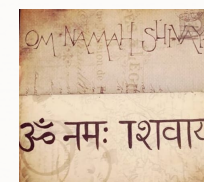 OM NAMAH SHIVA
ॐ नमः शिवाय